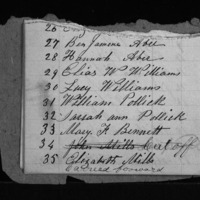 26
27 Benjamine Abee
28 Hannah Abee
29 Elias W Williams
30 Lucy Williams
31 William Pollick
32 Sarah ann Pollick
33 Mary F Bennett
34 John Mills Cut off
35 Elizabeth Mills
Carried forward